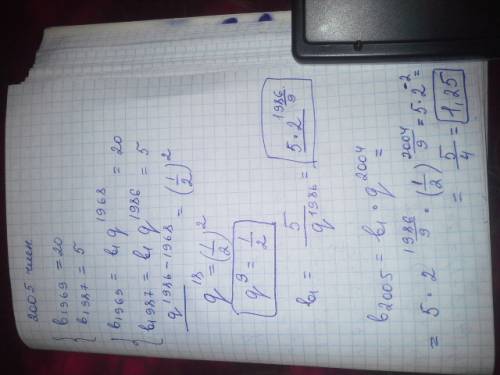 2005 член
{ b₁₉₆₉ = 20
b₁₉₈₇ = 5
{ b₁₉₆₉ = b₁ q¹⁹⁶⁸ = 20
b₁₉₈₇ = b₁ q¹⁹⁸⁶ = 5
q¹⁹⁸⁶⁻¹⁹⁶⁸ = (1/2)²
q¹⁸ = (1/2)²
q⁹ = 1/2
b₁ = 5/q¹⁹⁸⁶ = 5·2^(1986/9)
b₂₀₀₅ = b₁ · q²⁰⁰⁴ =
= 5·2^(1986/9) · (1/2)^(2004/9) = 5·2⁻²
= 5/4 = 1,25